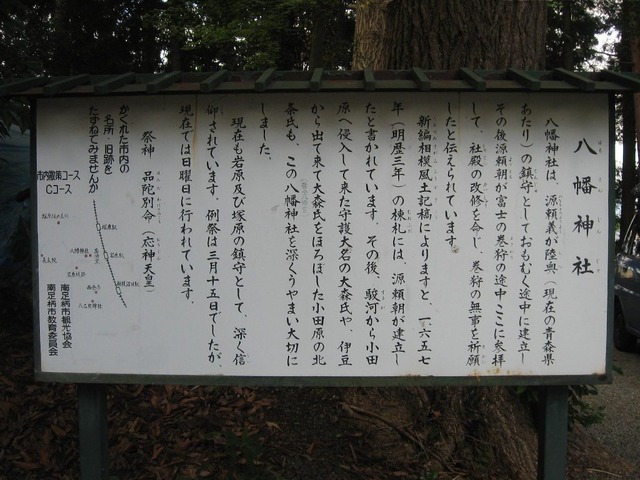 八幡神社
八幡神社は、源頼義が陸奥（現在の青森県
あたり）の鎮守としておもむく途中に建立し
その後源頼朝が富士の巻狩の途中、ここに参拝
して、社殿の改修を命じ、巻狩の無事を祈願
したと伝えられています。
新編相模風土記稿によりますと、一六五七
年（明歴三年）の棟札には、源頼朝が建立し
たと書かれています。その後、駿河から小田
原へ侵入して来た守護大名の大森氏や、伊豆
から出て来て大森氏をほろぼした小田原の北
条氏も、この八幡神社を深くうやまい大切に
しました。
現在も岩原及び塚原の鎮守として、深く信
仰されています。例祭は三月十五日でしたが、
現在では日曜日に行われています。
祭神 品陀別命（応神天皇）
かくれた市内の
名所・旧跡を
たずねてみませんか
市内散策コース
Cコース
八幡神社
南足柄市観光協会
南足柄市教育委員会